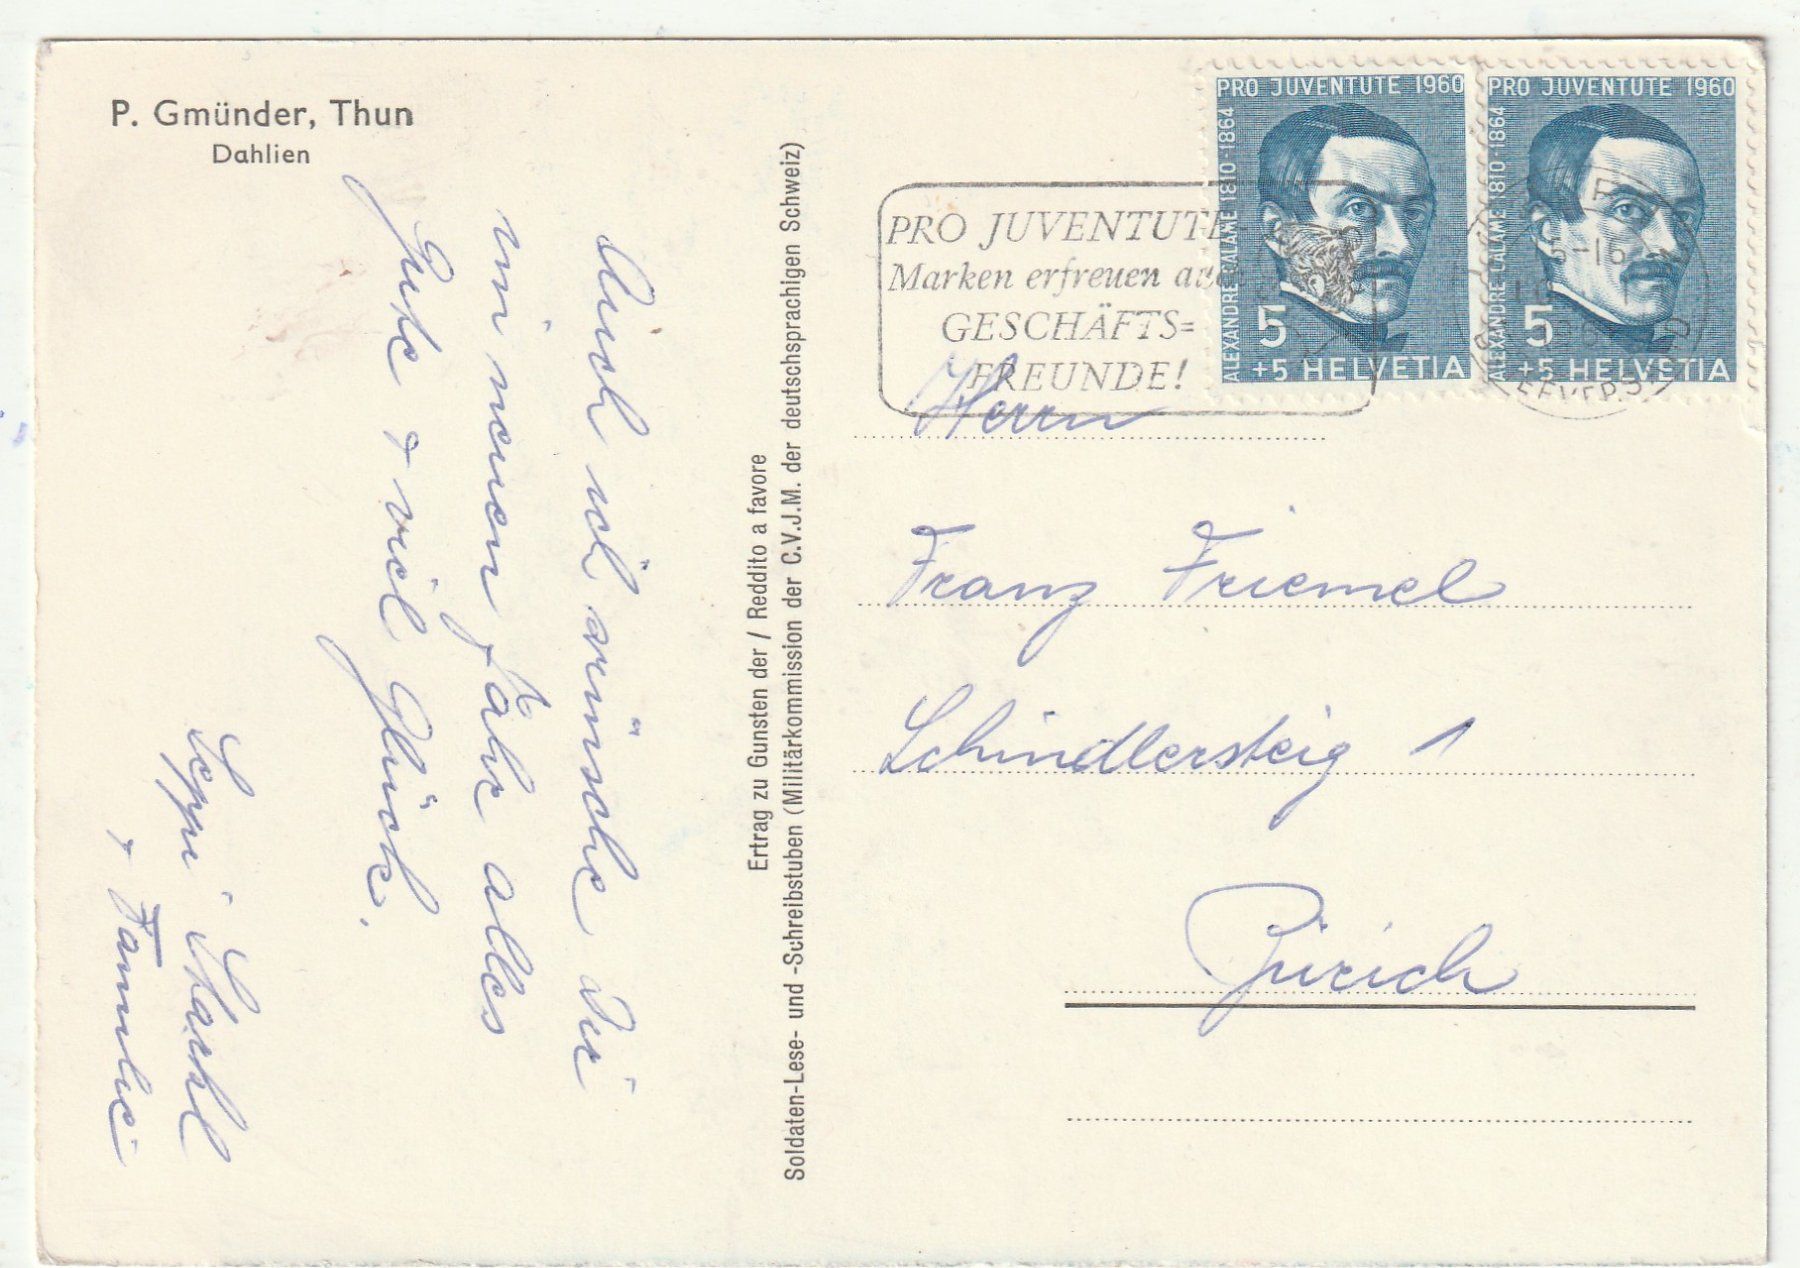 P. Gmünder, Thun
Dahlien
Auch ich wünsche Dir
im neuen Jahr alles
Gute & viel Glück.
Seppi
& Familie
Ertrag zu Gunsten der / Reddito a favore
Soldaten-Lese- und -Schreibstuben (Militärkommission der C.V.J.M. der deutschsprachigen Schweiz)
PRO JUVENTUTE
Marken erfreuen auch
GESCHÄFTS=
FREUNDE!
PRO JUVENTUTE 1960
ALEXANDRE CALAME 1810-1864
5
+5 HELVETIA
PRO JUVENTUTE 1960
ALEXANDRE CALAME 1810-1864
5
+5 HELVETIA
Herrn
Franz Friemel
Schindlersteig 1
Zürich